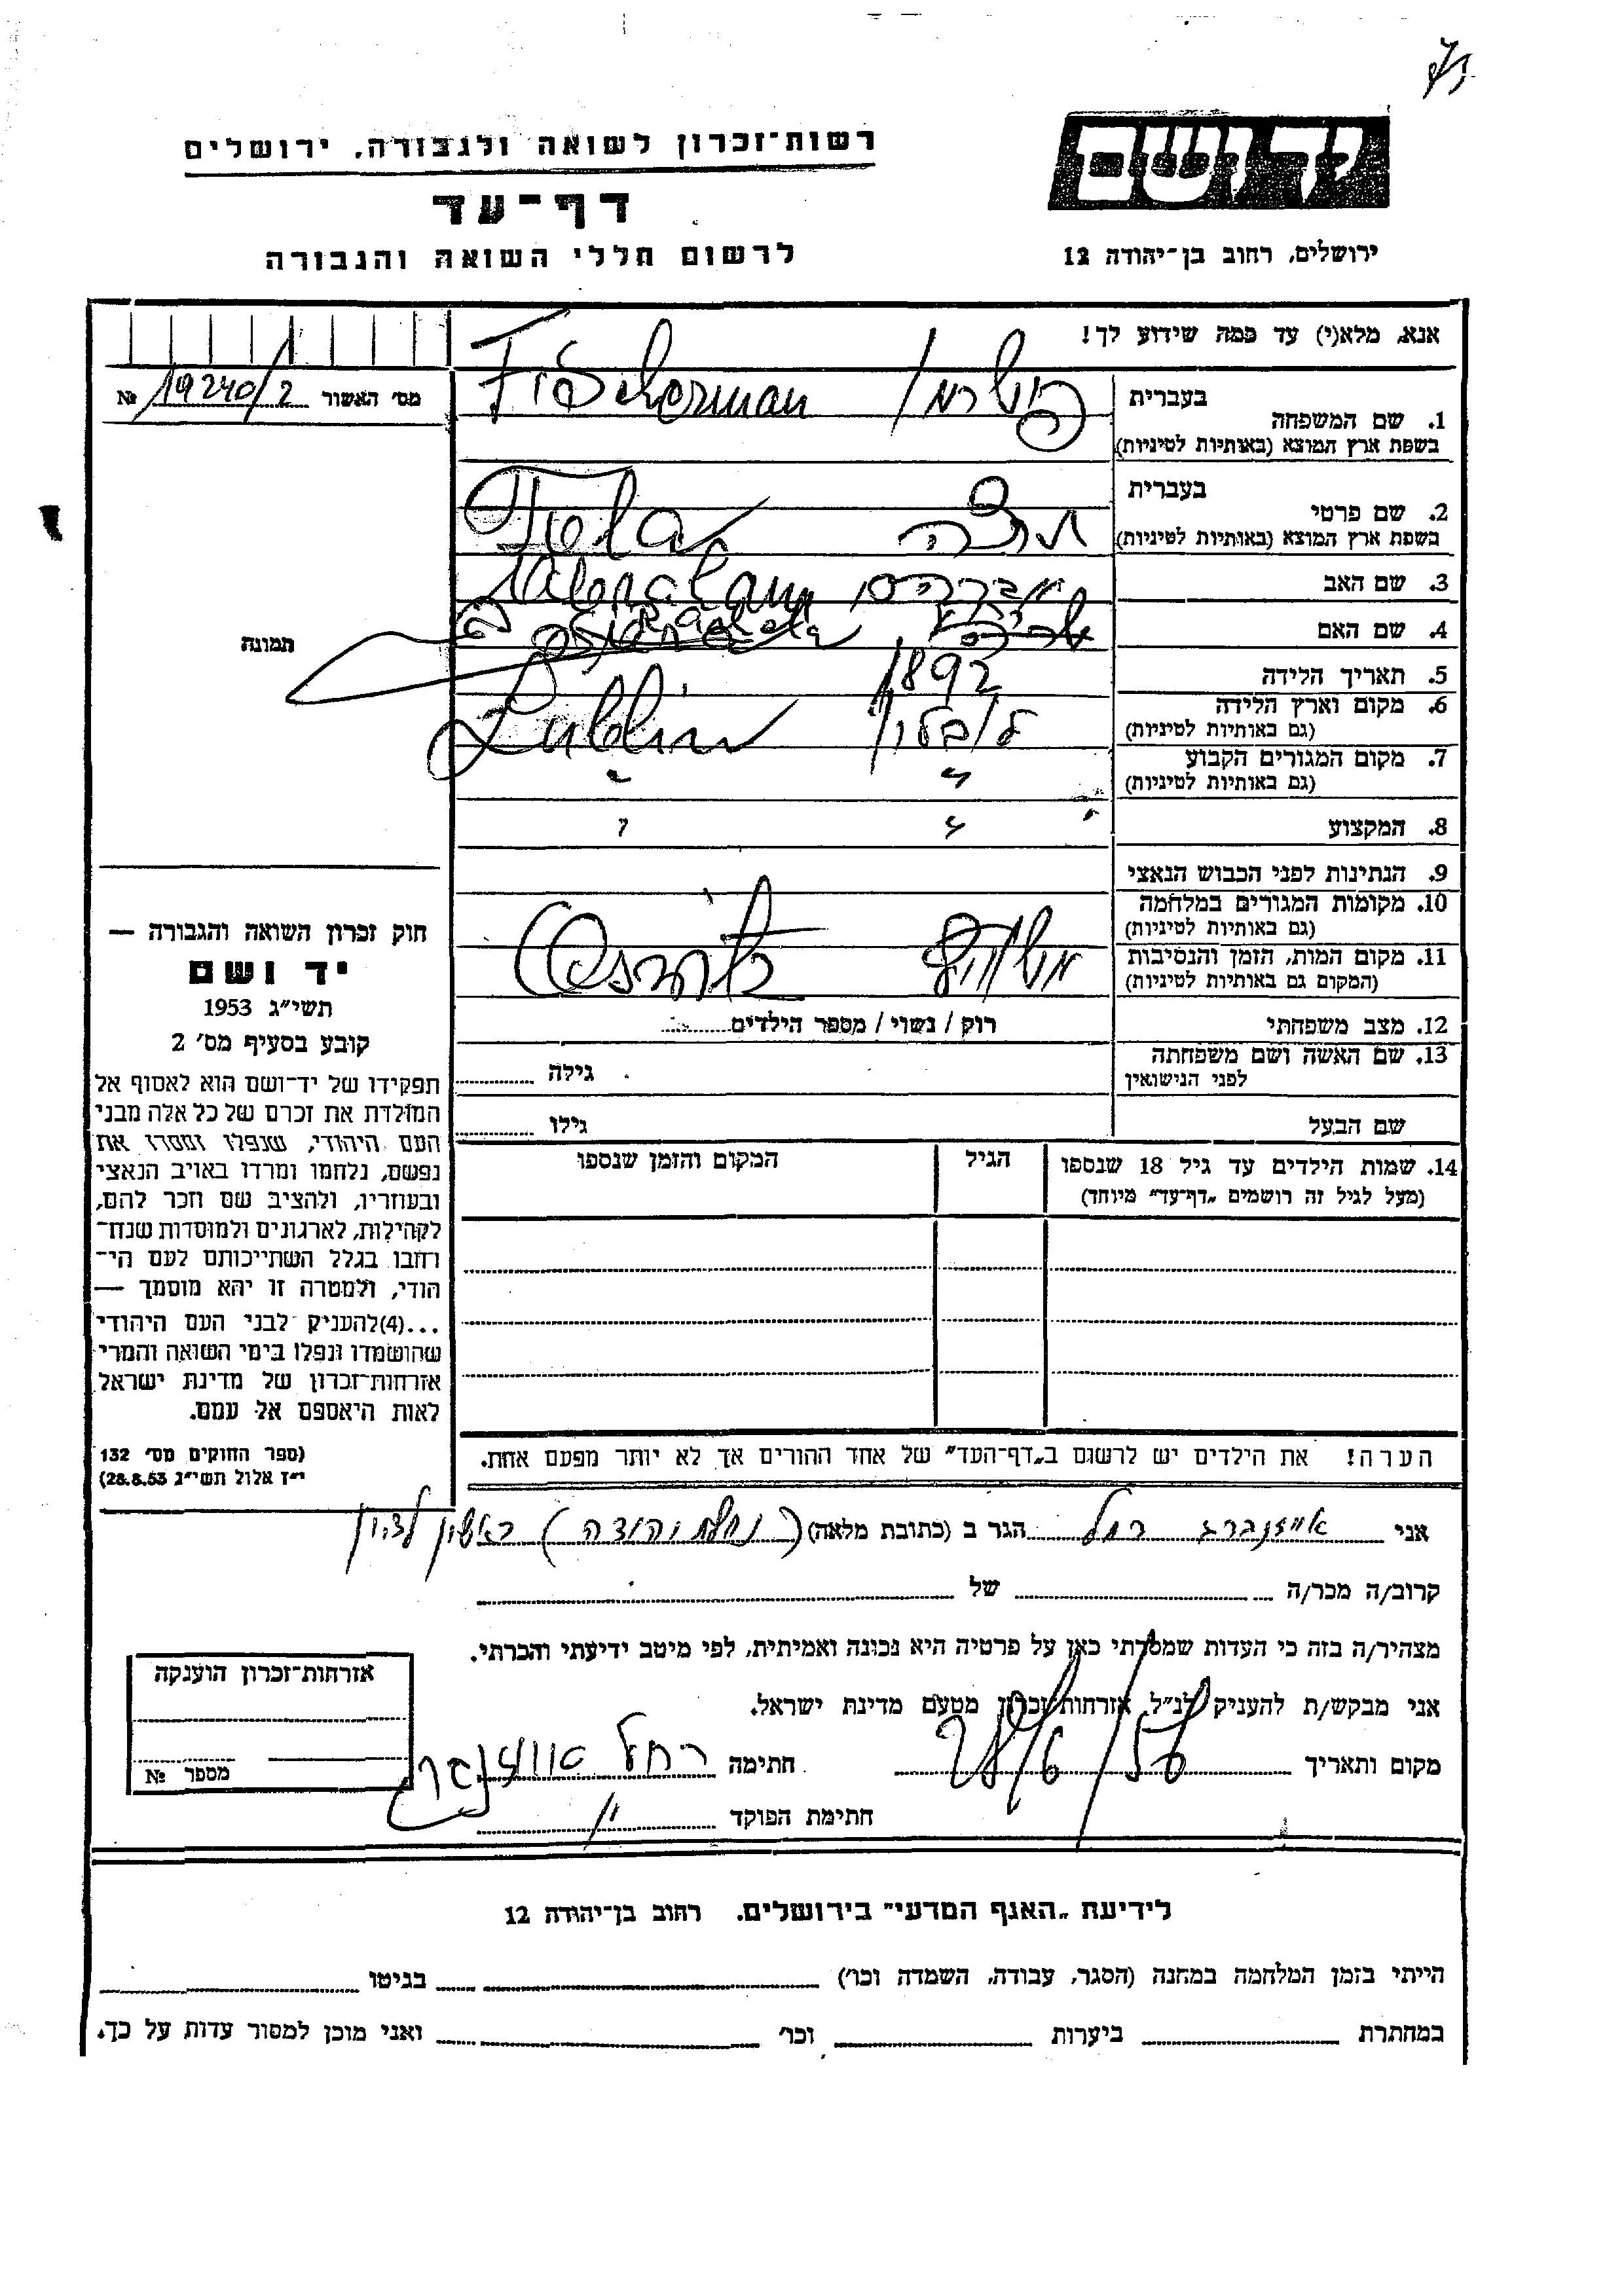 יד ושם
רשות־זכרון לשואה ולגבורה, ירושלים
דף־עד
ירושלים, רחוב בן־יהודה 12
לרשום חללי השואה והגבורה
אנא, מלא(י) עד כמה שידוע לך!
מס׳ האשור 19240/2 №
בעברית
1. שם המשפחה
בשפת ארץ המוצא (באותיות לטיניות)
פישרמן Fischerman
בעברית
2. שם פרטי
בשפת ארץ המוצא (באותיות לטיניות)
Tola
3. שם האב אברהם Abraham
4. שם האם
תמונה
5. תאריך הלידה 1892
6. מקום וארץ הלידה
(גם באותיות לטיניות)
לובלין Lublin
7. מקום המגורים הקבוע
(גם באותיות לטיניות)
8. המקצוע
9. הנתינות לפני הכבוש הנאצי
10. מקומות המגורים במלחמה
(גם באותיות לטיניות)
11. מקום המות, הזמן והנסיבות
(המקום גם באותיות לטיניות)
12. מצב משפחתי רוק / נשוי / מספר הילדים
13. שם האשה ושם משפחתה
לפני הנישואין
גילה
שם הבעל גילו
14. שמות הילדים עד גיל 18 שנספו
(מעל לגיל זה רושמים „דף־עד" מיוחד)
הגיל
המקום והזמן שנספו
הערה! את הילדים יש לרשום ב„דף־העד" של אחד ההורים אך לא יותר מפעם אחת.
חוק זכרון השואה והגבורה —
יד ושם
תשי״ג 1953
קובע בסעיף מס׳ 2
תפקידו של יד־ושם הוא לאסוף אל
המולדת את זכרם של כל אלה מבני
העם היהודי, שנפלו ומסרו את
נפשם, נלחמו ומרדו באויב הנאצי
ובעוזריו, ולהציב שם וזכר להם,
לקהילות, לארגונים ולמוסדות שנח־
רחבו בגלל השתייכותם לעם הי־
הודי, ולמטרה זו יהא מוסמך —
...(4)להעניק לבני העם היהודי
שהושמדו ונפלו בימי השואה והמרי
אזרחות־זכרון של מדינת ישראל
לאות היאספם אל עמם.
(ספר החוקים מס׳ 132
י״ז אלול תשי״ג 28.8.53)
אני אייזנברג רחל הגר ב (כתובת מלאה) (נחלת יהודה) ראשון לציון
קרוב/ה מכר/ה של
מצהיר/ה בזה כי העדות שמסרתי כאן על פרטיה היא נכונה ואמיתית, לפי מיטב ידיעתי והכרתי.
אני מבקש/ת להעניק לנ״ל אזרחות־זכרון מטעם מדינת ישראל.
מקום ותאריך 28/6/56 חתימה רחל אייזנברג
חתימת הפוקד
אזרחות־זכרון הוענקה
מספר №
לידיעת „האגף המדעי" בירושלים, רחוב בן־יהודה 12
הייתי בזמן המלחמה במחנה (הסגר, עבודה, השמדה וכו׳) בגיטו
במחתרת ביערות וכו׳ ואני מוכן למסור עדות על כך.